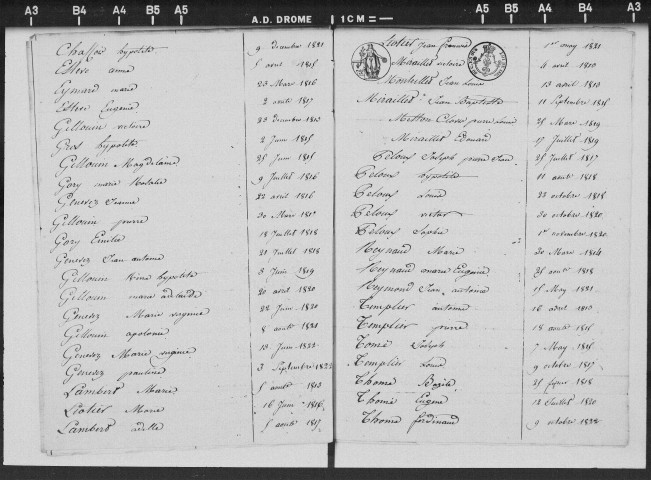 A3 B4 A4 B5 A5 A.D. DROME 1 CM A5 B5 A4 B4 A3
Chassoir hypolite 9 Decembre 1821
Estève anne 5 aout 1815
Eymard marie 23 Mars 1816
Estève Eugenie 2 aout 1817
Gillouin victoire 23 Decembre 1813
Gros hypolite 2 Juin 1815
Gillouin Magdelaine 25 Juin 1815
Gory marie Natalie 9 Juillet 1816
Genevez 22 aout 1816
Gillouin pierre 30 Mars
Gory Emilie 18 Juillet 1818
Genevez Jean antoine 21 Juillet 1818
Gillouin hypolite 8 Juin 1819
Gillouin marie adelaide 20 avril 1820
Genevez Marie virginie 22 Juin 1820
Gillouin apolonie 8 aout 1821
Genevez Marie virginie 13 Juin 1822
Genevez pauline 3 Septembre 1822
Lambert Marie 5 aout 1813
Liotier Marie 16 Juin 1816
Lambert adelle 5 aout 1817
Liotier Jean francois 1er may 1821
Miraillet victoire 4 avril 1810
Jean Louis 13 avril 1813
Miraillet Jean Baptiste 11 Septembre 1816
pierre Louis 25 Mars 1819
Miraillet Edouard 17 Juillet 1819
Peloux Joseph pierre Jean 25 Juillet 1817
Peloux hypolite 11 aout 1818
Peloux Louis 23 octobre 1818
Peloux victor 30 octobre 1820
Peloux Sophie 1er novembre 1820
Reynaud Marie 30 Mars 1814
Reynaud marie Eugenie 25 aout 1818
Reymond Jean antoine 15 May 1821
Templier antoine 16 avril 1813
Templier pierre 18 aout 1816
Tomé Joseph 7 May 1816
Templier Louis 9 octobre 1817
Thomé Rosalie 25 fevrier 1818
Thomé Eugene 12 Juillet 1820
Thomé ferdinand 9 octobre 1822